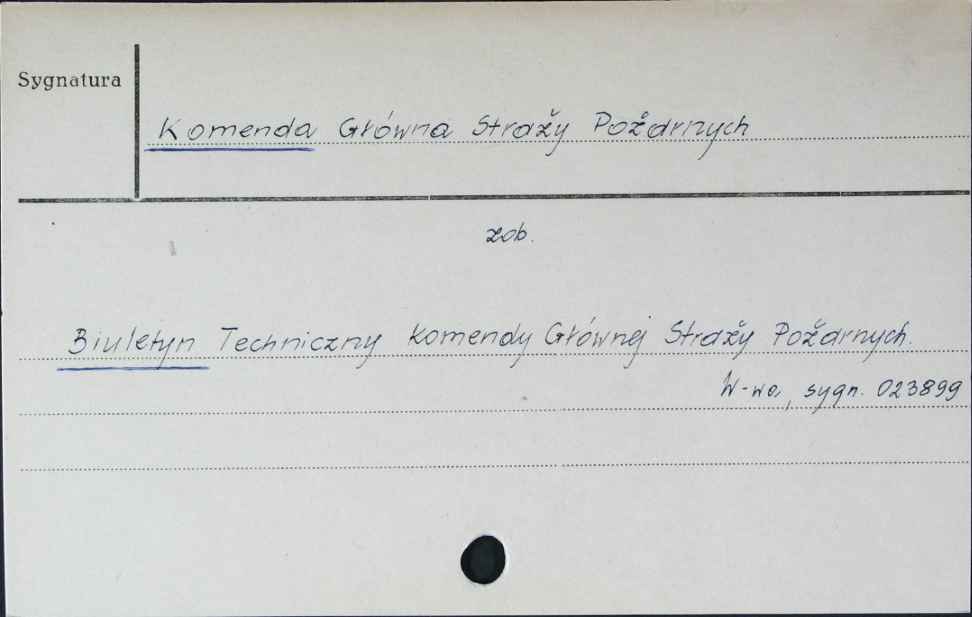 Sygnatura
Komenda Główna Straży Pożarnych
zob.
Biuletyn Techniczny Komendy Głównej Straży Pożarnych.
W-wa, sygn. 023899